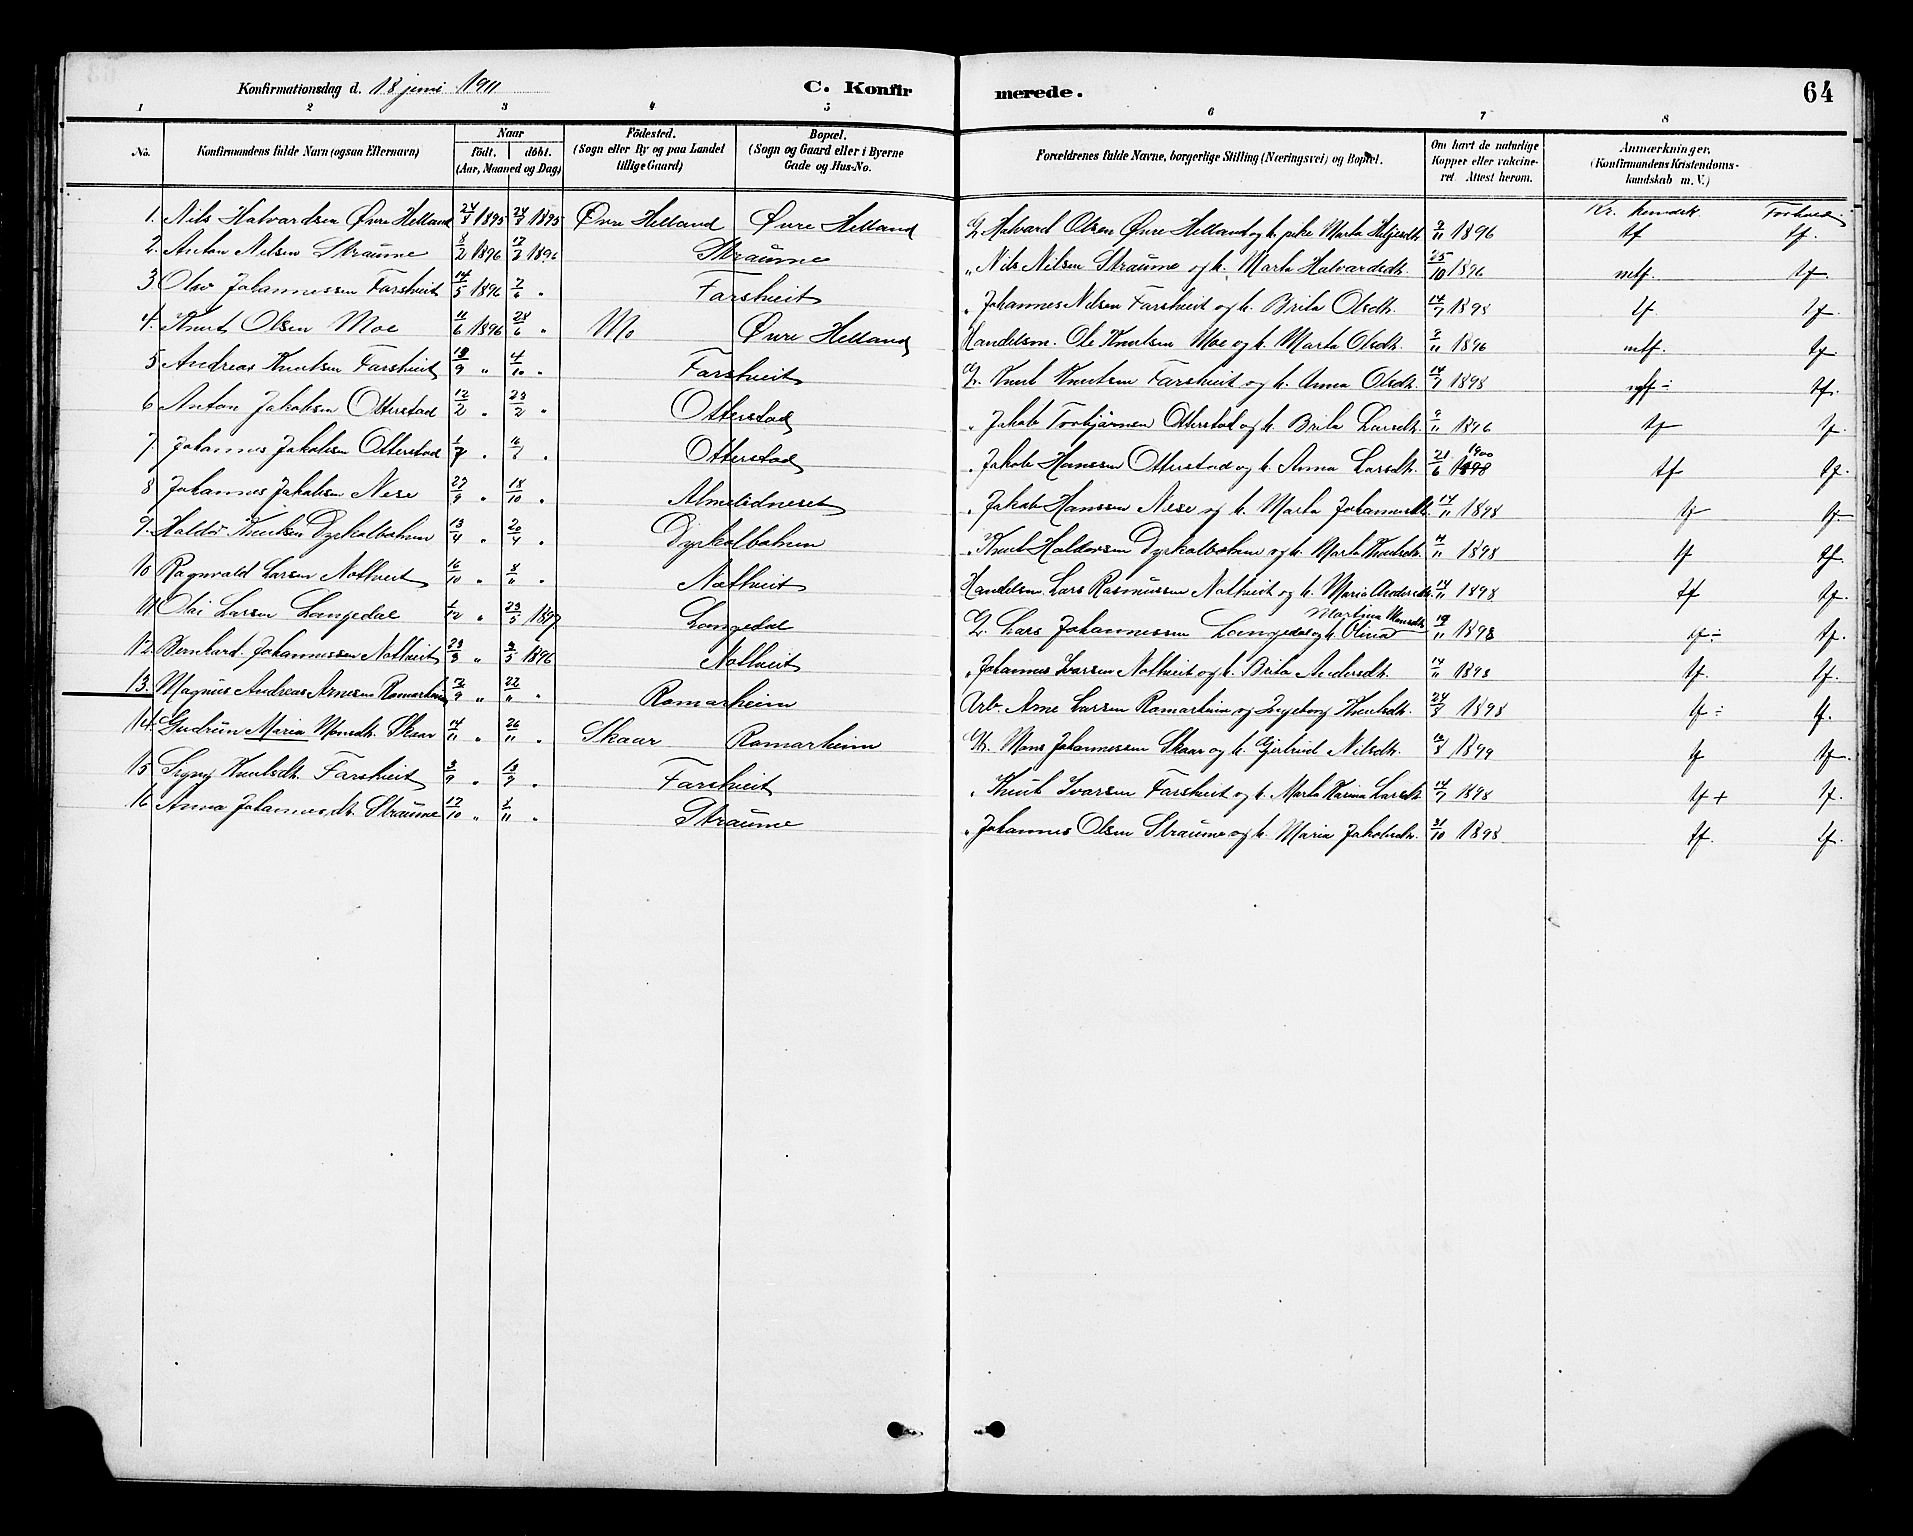 Konfirmationsdag d. 18 juni 1911 C. Konfir merede. 64
1 2 3 4 5 6 7 8
No. Konfirmandens fulde Navn (ogsaa Efternavn) Naar født. døbt. (Aar, Maaned og Dag) Fødested. (Sogn eller By og paa Landet tillige Gaard) Bopæl. (Sogn og Gaard eller i Byerne Gade og Hus-No. Forældrenes fulde Navne, borgerlige Stilling (Næringsvei) og Bopæl. Om havt de naturlige Kopper eller vakcineret Attest herom. Anmærkninger. (Konfirmandens Kristendomskundskab m. V.)
Kr. kundsk Forhold
1. Nils Halvardsen Øvre Helland 24/3 1895 24/3 1895 Øvre Helland Øvre Helland G. Halvard Olsen Øvre Helland og h. pike Marta Heljesdtr. 9/11 1896 tf tf.
2. Anton Nilsen Straume 8/2 1896 12/3 1896 Straume " Nils Nilsen Straume og h. Marta Halvardsdtr. 25/10 1896 mtf. tf
3 Olav Johannessen Farstveit 14/5 1896 7/6 " Farstveit " Johannes Nilsen Farstveit og h. Brita Olsdtr. 14/7 1898 tf tf.
4. Knut Olsen Moe 11/6 1896 28/6 " Mo Øvre Helland Handelsm. Ole Knutsen Moe og h. Marta Olsdtr. 9/11 1896 mtf. tf
5 Andreas Knutsen Farstveit 18/9 " 4/10 " Farstveit G. Knut Knutsen Farstveit og h. Anna Olsdtr. 14/7 1898 mtf ÷ tf.
6 Anton Jakobsen Otterstad 12/2 " 23/2 " Otterstad " Jakob Torbjørnsen Otterstad og h. Brita Larsdtr. 9/11 1896 tf tf.
7. Johannes Jakobsen Otterstad " " Otterstad " Jakob Hanssen Otterstad og h. Anna Larsdtr. 21/6 1900 1898 tf tf.
8 Johannes Jakobsen Nese 27/9 " 18/10 " Almelidneset " Jakob Hanssen Nese og h. Marta Johannesdtr. 14/11 1898 tf tf.
9. Haldor Knutsen Dyrkolbotnen 13/4 " 20/4 " Dyrkolbotnen " Knut Haldorsen Dyrkolbotnen og h. Marta Knutsdtr. 14/11 1898 tf tf.
10 Ragnvald Larsen Nottveit 16/10 " 8/11 " Nottveit Handelsm. Lars Rasmussen Nottveit og h. Maria Andersdtr. 14/11 1898 tf tf.
11 Olai Larsen Langedal 1/12 " 23/5 1897 Langedal G. Lars Johannessen Langedal og h. Olina Martina Monsdtr. 19/11 1898 tf÷ tf.
12. Bernhard Johannessen Nottveit 23/3 " 3/5 1896 Nottveit " Johannes Ivarsen Nottveit og h. Brita Andersdtr. 14/11 1898 tf. tf.
13. Magnus Andreas Arnesen Romarheim 12/9 " 22/11 " Romarheim Arb. Arne Larsen Romarheim og Ingeborg Knutsdtr. 24/3 1898 tf÷ tf.
14. Gudrun Maria Monsdtr. Skaar 14/11 " 26/11 " Skaar Romarheim G. Mons Johannessen Skaar og h. Gjertrud Nilsdtr. 1899 tf tf.
15 Signy Knutsdtr. Farstveit 3/9 " 13/9 " Farstveit " Knut Ivarsen Farstveit og h. Marta Karina Larsdtr. 14/7 1898 tf + tf.
16 Anna Johannesdtr. Straume 12/10 " 1/11 " Straume " Johannes Olsen Straume og h. Maria Jakobsdtr. 31/10 1898 tf. tf.